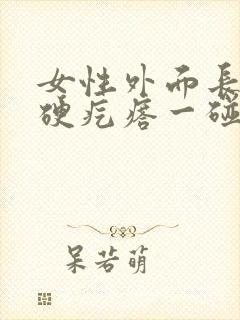 女性外而長
硬疙瘩一碰
呆若萌